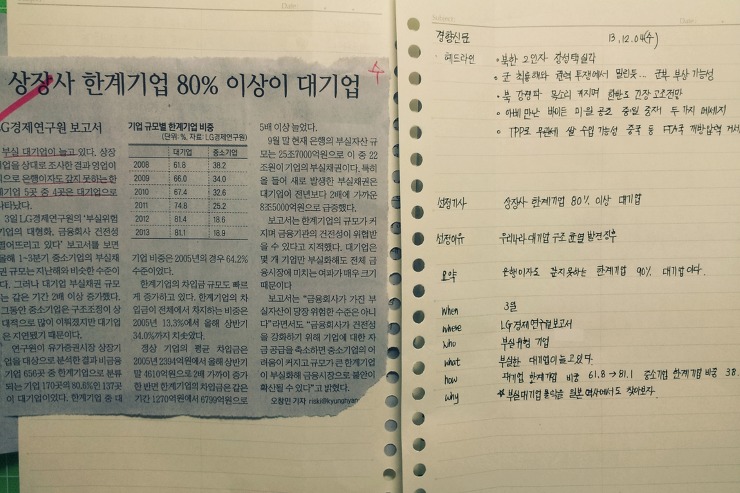 상장사 한계기업 80% 이상이 대기업
수
LG경제연구원 보고서
부실 대기업이 늘고 있다. 상장
기업을 상대로 조사한 결과 영업이
으로 은행이자도 갚지 못하는 한
계기업 5곳 중 4곳은 대기업으로
나타났다.
3일 LG경제연구원의 '부실위험
기업의 대형화, 금융회사 건전성
떨어뜨리고 있다' 보고서를 보면
올해 1~3분기 중소기업의 부실채
권 규모는 지난해와 비슷한 수준이
다. 그러나 대기업 부실채권 규모
는 같은 기간 2배 이상 증가했다.
그동안 중소기업은 구조조정이 상
대적으로 많이 이뤄졌지만 대기업
은 지연됐기 때문이다.
연구원이 유가증권시장 상장기
업을 대상으로 분석한 결과 비금융
기업 656곳 중 한계기업으로 분류
되는 기업 170곳의 80.6%인 137곳
이 대기업이었다. 한계기업 중 대
기업 규모별 한계기업 비중
(단위: %, 자료: LG경제연구원)
대기업 중소기업
2008 61.8 38.2
2009 66.0 34.0
2010 67.4 32.6
2011 74.8 25.2
2012 81.4 18.6
2013 81.1 18.9
기업 비중은 2005년의 경우 64.2%
수준이었다.
한계기업의 차입금 규모도 빠르
게 증가하고 있다. 한계기업의 차
입금이 전체에서 차지하는 비중은
2005년 13.3%에서 올해 상반기
34.0%까지 치솟았다.
정상 기업의 평균 차입금은
2005년 2394억원에서 올해 상반기
말 4610억원으로 2배 가까이 증가
한 반면 한계기업의 차입금은 같은
기간 1270억원에서 6799억원으로
5배 이상 늘었다.
9월 말 현재 은행의 부실자산 규
모는 25조7000억원으로 이 중 22
조원이 기업의 부실채권이다. 특히
올 들어 새로 발생한 부실채권은
대기업이 전년보다 2배에 가까운
8조5000억원으로 급증했다.
보고서는 한계기업의 규모가 커
지며 금융기관의 건전성이 위협받
을 수 있다고 지적했다. 대기업은
몇 개 기업만 부실화해도 전체 금
융시장에 미치는 여파가 매우 크기
때문이다
보고서는 "금융회사가 가진 부
실자산이 당장 위험한 수준은 아니
다"라면서도 "금융회사가 건전성
을 강화하기 위해 기업에 대한 자
금 공급을 축소하면 중소기업의 어
려움이 커지고 규모가 큰 한계기업
이 부실화해 금융시장으로 불안이
확산될 수 있다"고 밝혔다.
오창민 기자 riski@kyunghyan
경향신문 13.12.04(수)
헤드라인 • 북한 2인자 장성택 실각
• 군 최룡해와 권력 투쟁에서 밀린듯... 군부 부상 가능성
• 북 강경파 목소리 커지며 한반도 긴장 고조 전망
• 아베 만난 바이든 미·일 공조 중·일 중재 두 가지 메세지
• TPP로 우물에 쌀 수입 가능성 중국 등 FTA국 개방압력 거세
선정기사 상장사 한계기업 80% 이상 대기업
선정이유 우리나라 대기업 구조 균열 발견징후
요약 은행이자도 갚지 못하는 한계기업 90% 대기업이다.
When 3일
where LG경제연구원보고서
who 부실위험 기업
what 부실한 대기업이 늘고 있다.
how 대기업 한계기업 비중 61.8→81.1 중소기업 한계기업 비중 38.
why * 부실대기업 몰락을 일본 역사에서도 찾아보자.